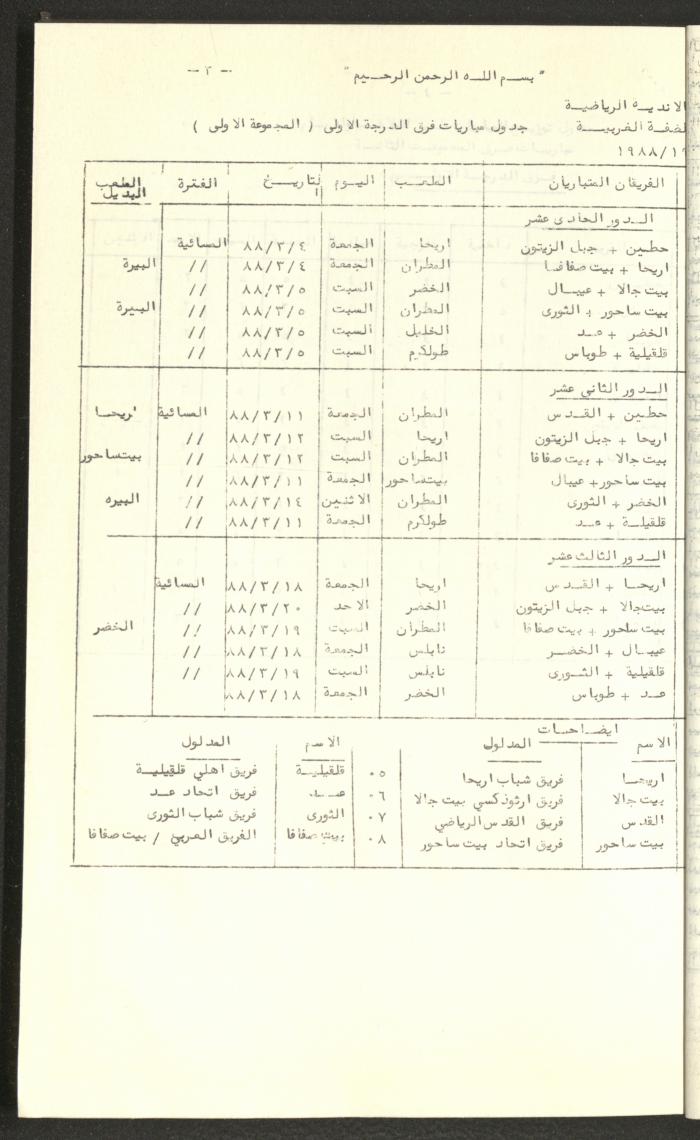 - ٣ -
" بسم الله الرحمن الرحيم "
الاندية الرياضية
الضفة الغربية جدول مباريات فرق الدرجة الاولى ( المجموعة الاولى )
١٩٨٨/
الفريقان المتباريان الملعب اليوم التاريخ الفترة الملعب البديل
الدور الحادى عشر
حطين + جبل الزيتون اريحا الجمعة ٨٨/٣/٤ المسائية
اريحا + بيت صفافا المطران الجمعة ٨٨/٣/٤ // البيرة
بيت جالا + عيبال الخضر السبت ٨٨/٣/٥ //
بيت ساحور + الثورى المطران السبت ٨٨/٣/٥ // البيرة
الخضر + عد الخليل السبت ٨٨/٣/٥ //
قلقيلية + طوباس طولكرم السبت ٨٨/٣/٥ //
الدور الثاني عشر
حطين + القدس المطران الجمعة ٨٨/٣/١١ المسائية اريحا
اريحا + جبل الزيتون اريحا السبت ٨٨/٣/١٢ //
بيت جالا + بيت صفافا المطران السبت ٨٨/٣/١٢ // بيتساحور
بيت ساحور+ عيبال بيتساحور الجمعة ٨٨/٣/١١ //
الخضر + الثورى المطران الاثنين ٨٨/٣/١٤ // البيره
قلقيلية + عد طولكرم الجمعة ٨٨/٣/١١ //
الدور الثالث عشر
اريحا + القدس اريحا الجمعة ٨٨/٣/١٨ المسائية
بيتجالا + جبل الزيتون الخضر الاحد ٨٨/٣/٢٠ //
بيت ساحور + بيت صفافا المطران السبت ٨٨/٣/١٩ // الخضر
عيبال + الخضر نابلس الجمعة ٨٨/٣/١٨ //
قلقيلية + الثورى نابلس السبت ٨٨/٣/١٩ //
عد + طوباس الخضر الجمعة ٨٨/٣/١٨
ايضاحات
الاسم المدلول الاسم المدلول
اريحا فريق شباب اريحا ٠٥ قلقيلية فريق اهلي قلقيلية
بيت جالا فريق ارثوذكسي بيت جالا ٠٦ عد فريق اتحاد عد
القدس فريق القدس الرياضي ٠٧ الثورى فريق شباب الثورى
بيت ساحور فريق اتحاد بيت ساحور ٠٨ بيت صفافا الفريق العربي / بيت صفافا